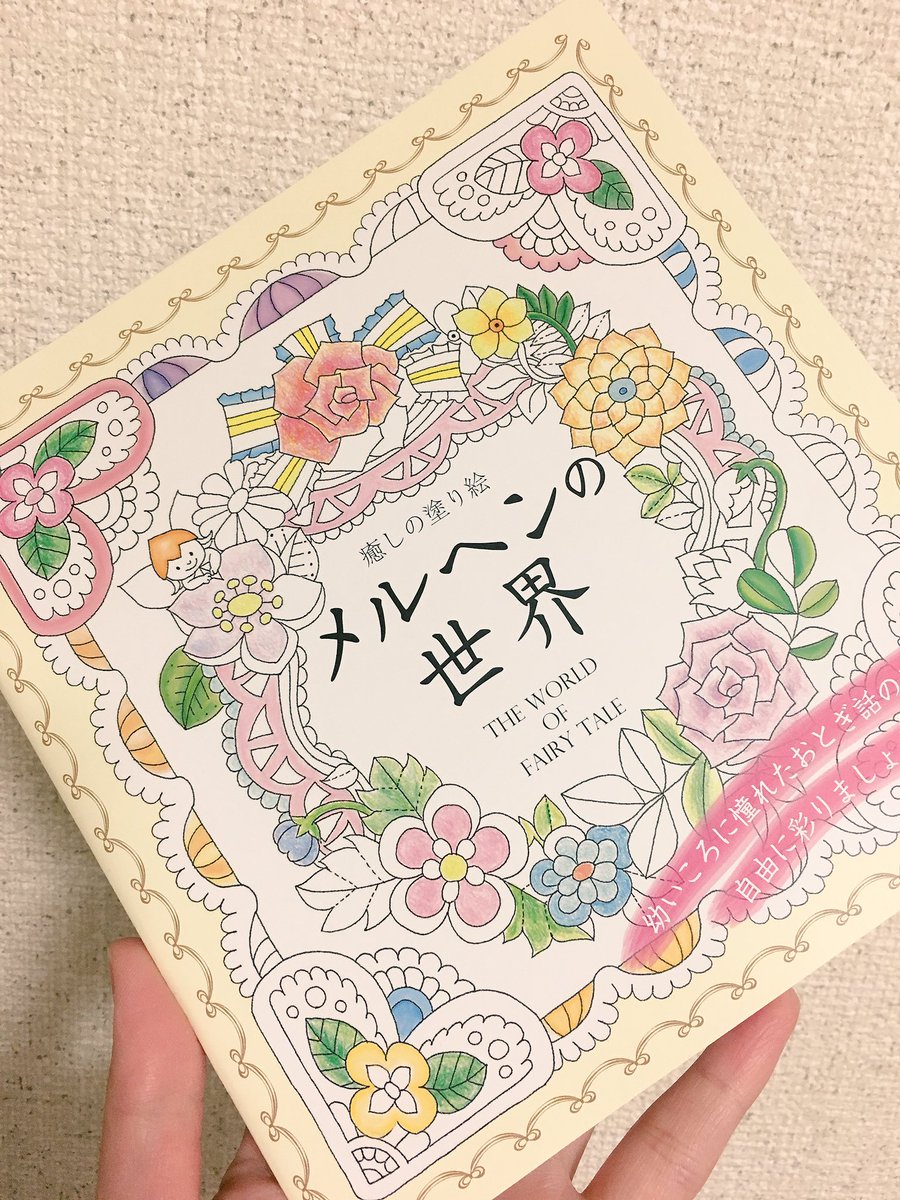 癒しの塗り絵
メルヘンの
世界
THE WORLD
OF
FAIRY TALE
幼いころに憧れたおとぎ話の
自由に彩りましょ